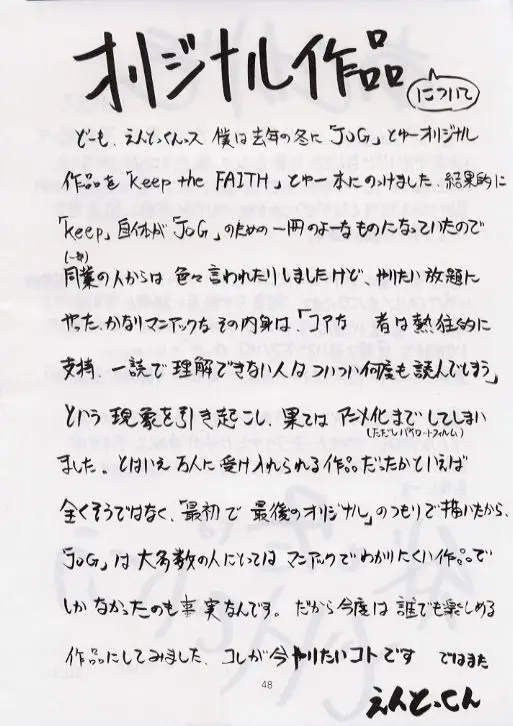 オリジナル作品
について
どーも、えんどっくんス 僕は去年の冬に「JoG」とゆーオリジナル
作品を "Keep the FAITH" とゆー本にのっけました、結果的に
「keep」自体が「JoG」のための一冊のよーなものになっていたので
(一部)
同業の人からは 色々言われたりしましたけど、やりたい放題に
やった、かなりマニアックな その内身は、「コアな 者は熱狂的に
支持、一読で理解できない人はついつい何度も読んでしまう」
という 現象を引き起こし、果ては アニメ化までしてしまい
(ただしパイロットフィルム)
ました。とはいえ万人に受け入れられる作品だったかといえば
全くそうではなく、「最初で 最後のオリジナル」のつもりで描いたから、
「JoG」は 大多数の人にとっては マニアックでわかりにくい作品で
しかなかったのも事実なんです。だから今度は 誰でも楽しめる
作品にしてみました、コレが今やりたいコトです ではまた
48
えんどっくん